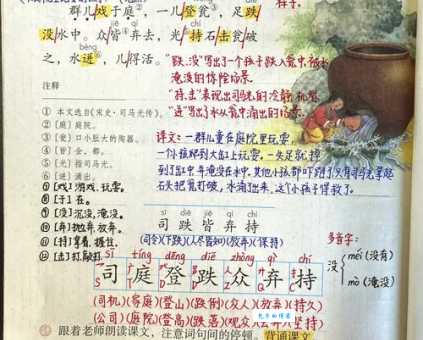 样子。
群儿戏于庭②,一儿登瓮③,足跌
jiē qì chí
没水中。众皆④弃去,光⑤持石击瓮破
bèng
之,水迸⑥,儿得活。
"跌、没"写出了个孩子跌入瓮中被水
淹没的惊险场景。
"持、击"表现出司马光的冷静、机智。
"迸"写出了水从瓮中涌出的场景。
注释
① 本文选自《宋史·司马光传》。
②〔庭〕庭院。
③〔瓮〕口小肚大的陶器。
④〔皆〕全,都。
⑤〔光〕指司马光。
⑥〔迸〕涌出。
⑦【戏】游戏,玩耍。
⑧【于】在。
⑨【没】沉没,淹没。
⑩【弃】抛弃,放弃。
⑪【持】拿着,握住。
⑫【击】打,敲打。
译文:一群儿童在庭院里玩耍,
一个小孩爬到大缸上玩耍,一失足就掉
石头把瓮打破,水涌出来,这个小孩子得救了。
sī diē jiē qì chí
司 跌 皆 弃 持
(司令)(下跌)(人尽皆知)(放弃)(保持)
sī tíng dēng diē zhòng qì chí
司 庭 登 跌 众 弃 持
(司机)(家庭)(登山)(跌倒)(众人)(放弃)(持久)
(公司)(庭院)(登高)(跌落)(观众)
多音字:
没
méi(没有)
mò(淹没)
跟着老师朗读课文,注意词句间的停顿。背诵课文